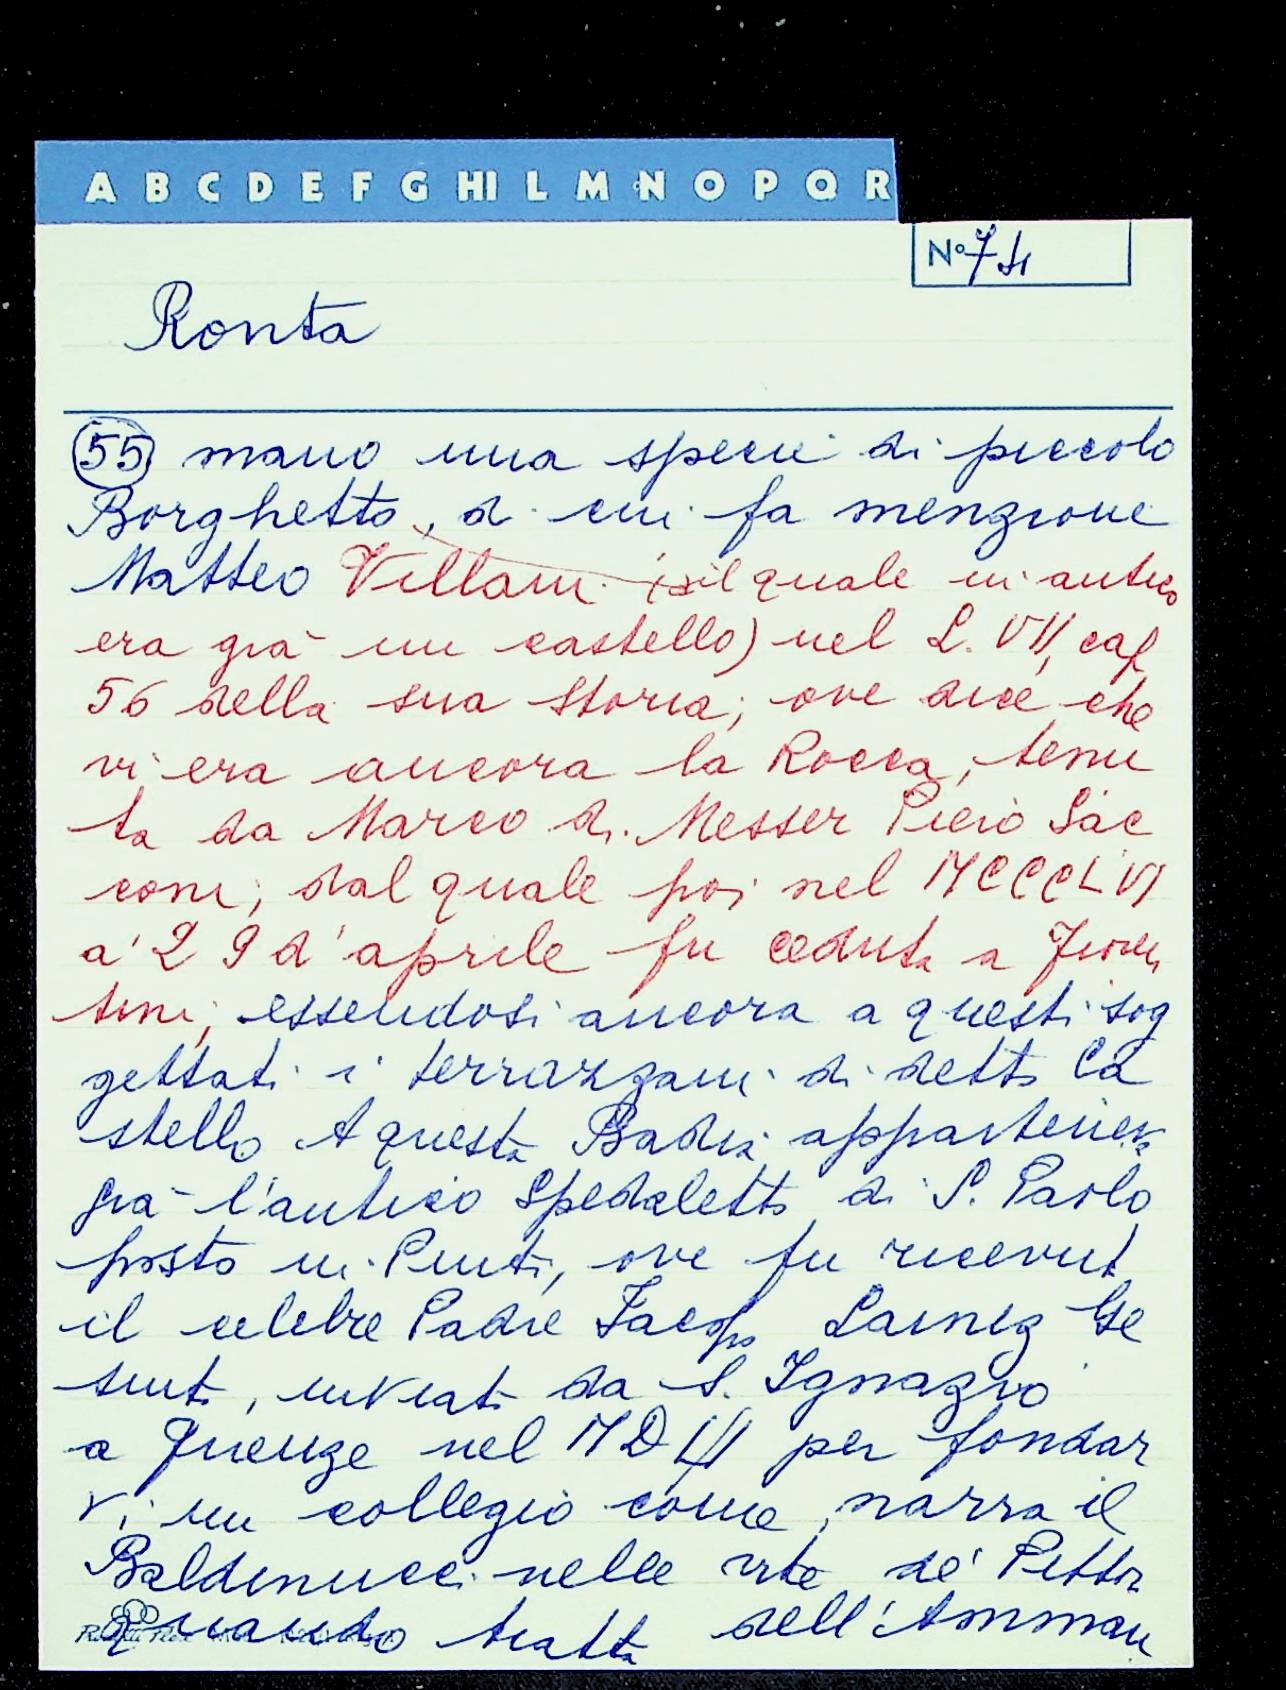 A B C D E F G HI L M N O P Q R
N° 74
Ronta
55 mano una specie di piccolo
Borghetto, di cui fa menzione
Matteo Villani (il quale in antico
era già un castello) nel L. VII, cap
56 della sua storia; ove dice che
vi era ancora la Rocca, tenu
ta da Marco di Messer Piero Sac
coni; dal quale poi nel MCCCLVI
a' 29 d'aprile fu ceduta a Fioren
tini; essendosi ancora a questi sog
gettati i terrazzani di detto Ca
stello A questa Badia apparteneva
già l'antico Spedaletto di S. Paolo
posto in Pinti, ove fu ricevut
il celebre Padre Jacopo Lainez Ge
suit, inviato da S. Ignazio
a Firenze nel MDLII per fondar
vi un collegio come narra il
Baldinucci nelle vite de' Pittori
quando tratta dell'Amman